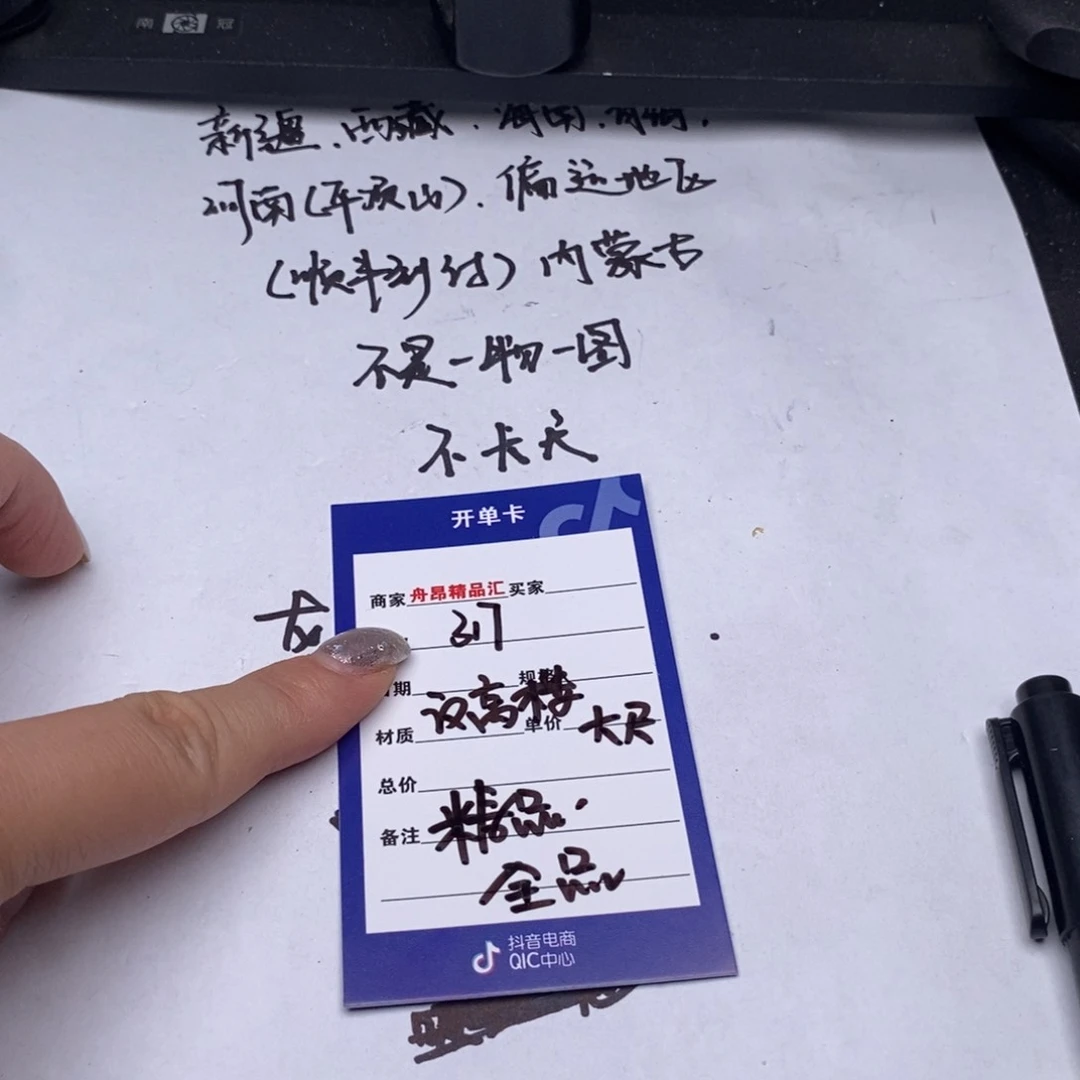 南 冠
新疆、西藏、海南、
河南(平顶山)、偏远地区
(顺丰到付)内蒙古
不是一物一图
不卡尺
开单卡
商家 舟昂精品汇 买家
317
期 规格
汉高楼
材质 单价 大尺
总价
备注 精品.
全品
抖音电商
QIC中心